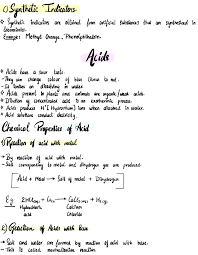 c) Synthetic Indicators
→ Synthetic indicators are obtained from artificial substances that are synthesized in
laboratories.
Example: Methyl Orange, Phenolphthalein.
Acids
→ Acids have a sour taste.
- They can change colour of blue litmus to red.
- in dissolving in water.
→ Acids present in plants and animals are organic/weak acids.
→ Dilution of concentrated acid is an exothermic process.
→ Acids produce H⁺ (Hydronium) ions when dissolved in water.
→ Acid solutions conduct electricity.
Chemical Properties of Acid
1) Reaction of acid with metal
→ By reaction of acid with metal.
→ Salt corresponding to metal and dihydrogen gas are produced.
Acid + Metal → Salt of metal + Dihydrogen
Eg 2HCl(aq) + Ca(s) → CaCl₂(aq) + H₂(g)
Hydrochloric Calcium
acid Chloride
2) Reaction of Acids with base
→ Salt and water are formed by reaction of acid with base.
- This is called neutralisation reaction